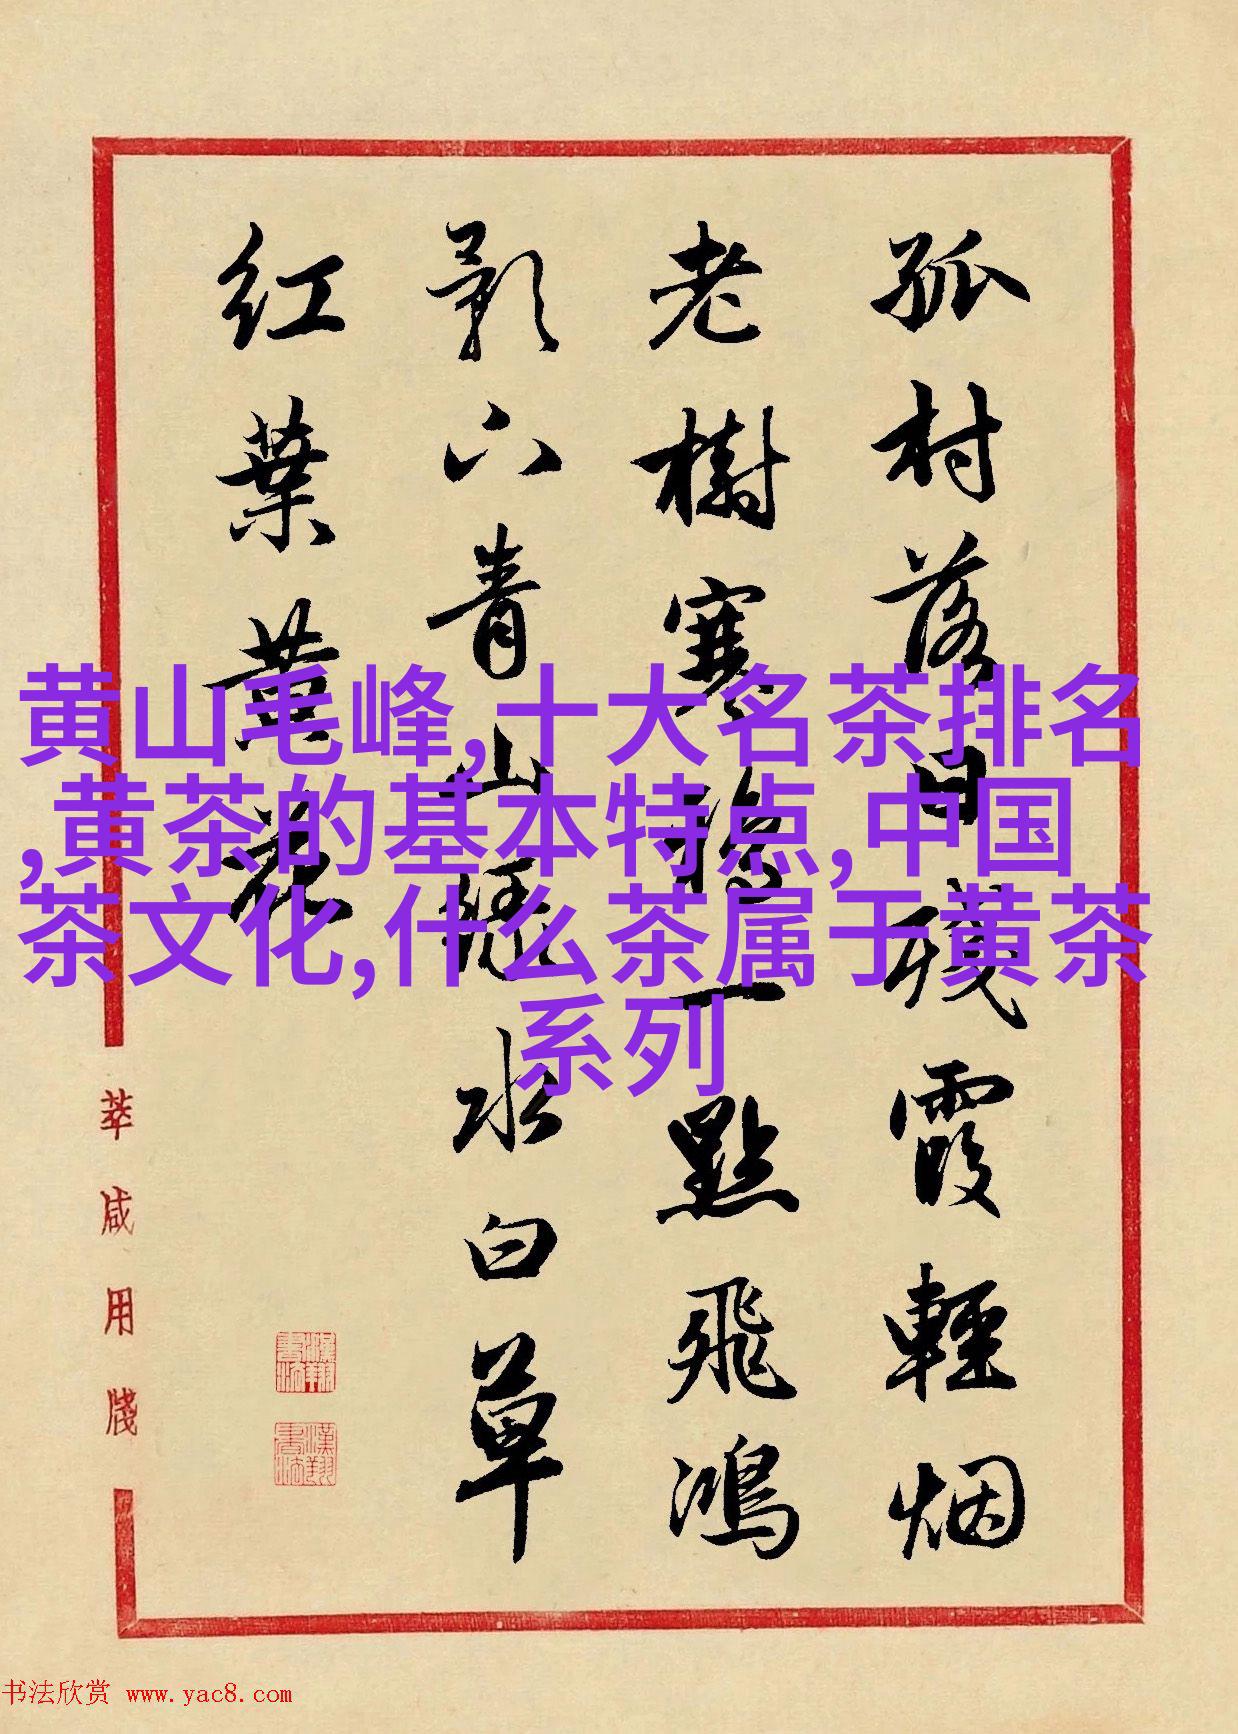 孤村落日残霞輕烟
老樹寒鴉一點飛鴻
影下青山緑水白草
红葉黄花
黄山毛峰,十大名茶排名
,黄茶的基本特点,中国
茶文化,什么茶属于黄茶
系列
萃咸用牋
书法欣赏 www.yac8.com